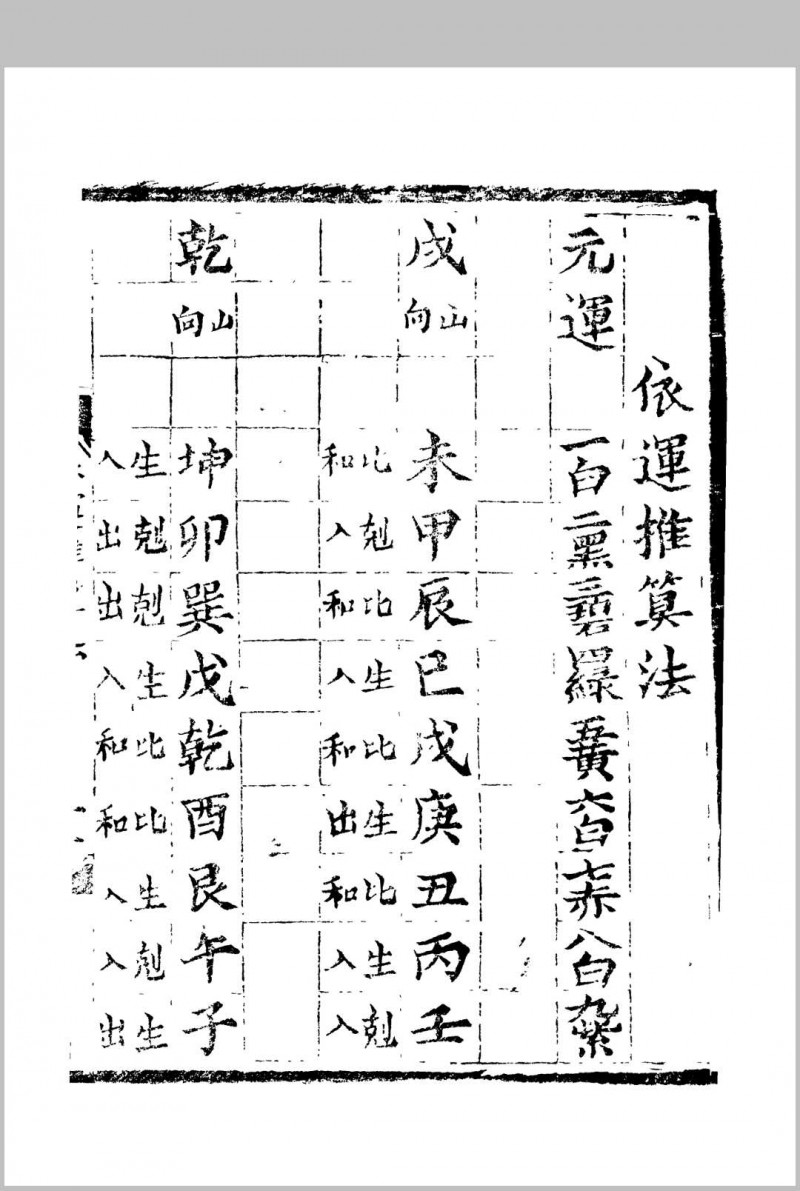 依運推算法
元運 一白二黑三碧四綠五黃六白七赤八白九紫
戌山向 未甲辰巳戌庚丑丙壬
比和 剋入 比和 生入 比和 生出 比和 生入 剋入
乾山向 坤卯巽戊乾酉艮午子
生入 剋出 剋出 生入 比和 比和 生入 剋入 生出